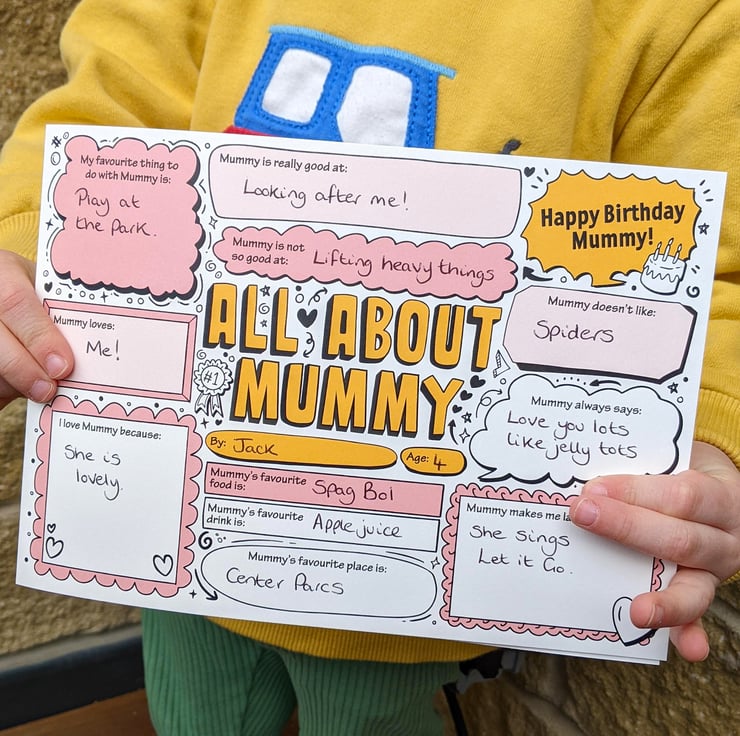 My favourite thing to
do with Mummy is:
Play at
the Park.
Mummy is really good at:
Looking after me!
Mummy is not
so good at: Lifting heavy things
Happy Birthday
Mummy!
Mummy loves:
Me!
ALL ABOUT
MUMMY
#1
Mummy doesn't like:
Spiders
Mummy always says:
Love you lots
like jelly tots
I love Mummy because:
She is
lovely.
By: Jack
Age: 4
Mummy's favourite
food is: Spag Bol
Mummy's favourite
drink is: Apple juice
Mummy's favourite place is:
Center Parcs
Mummy makes me
She sings
Let it Go.